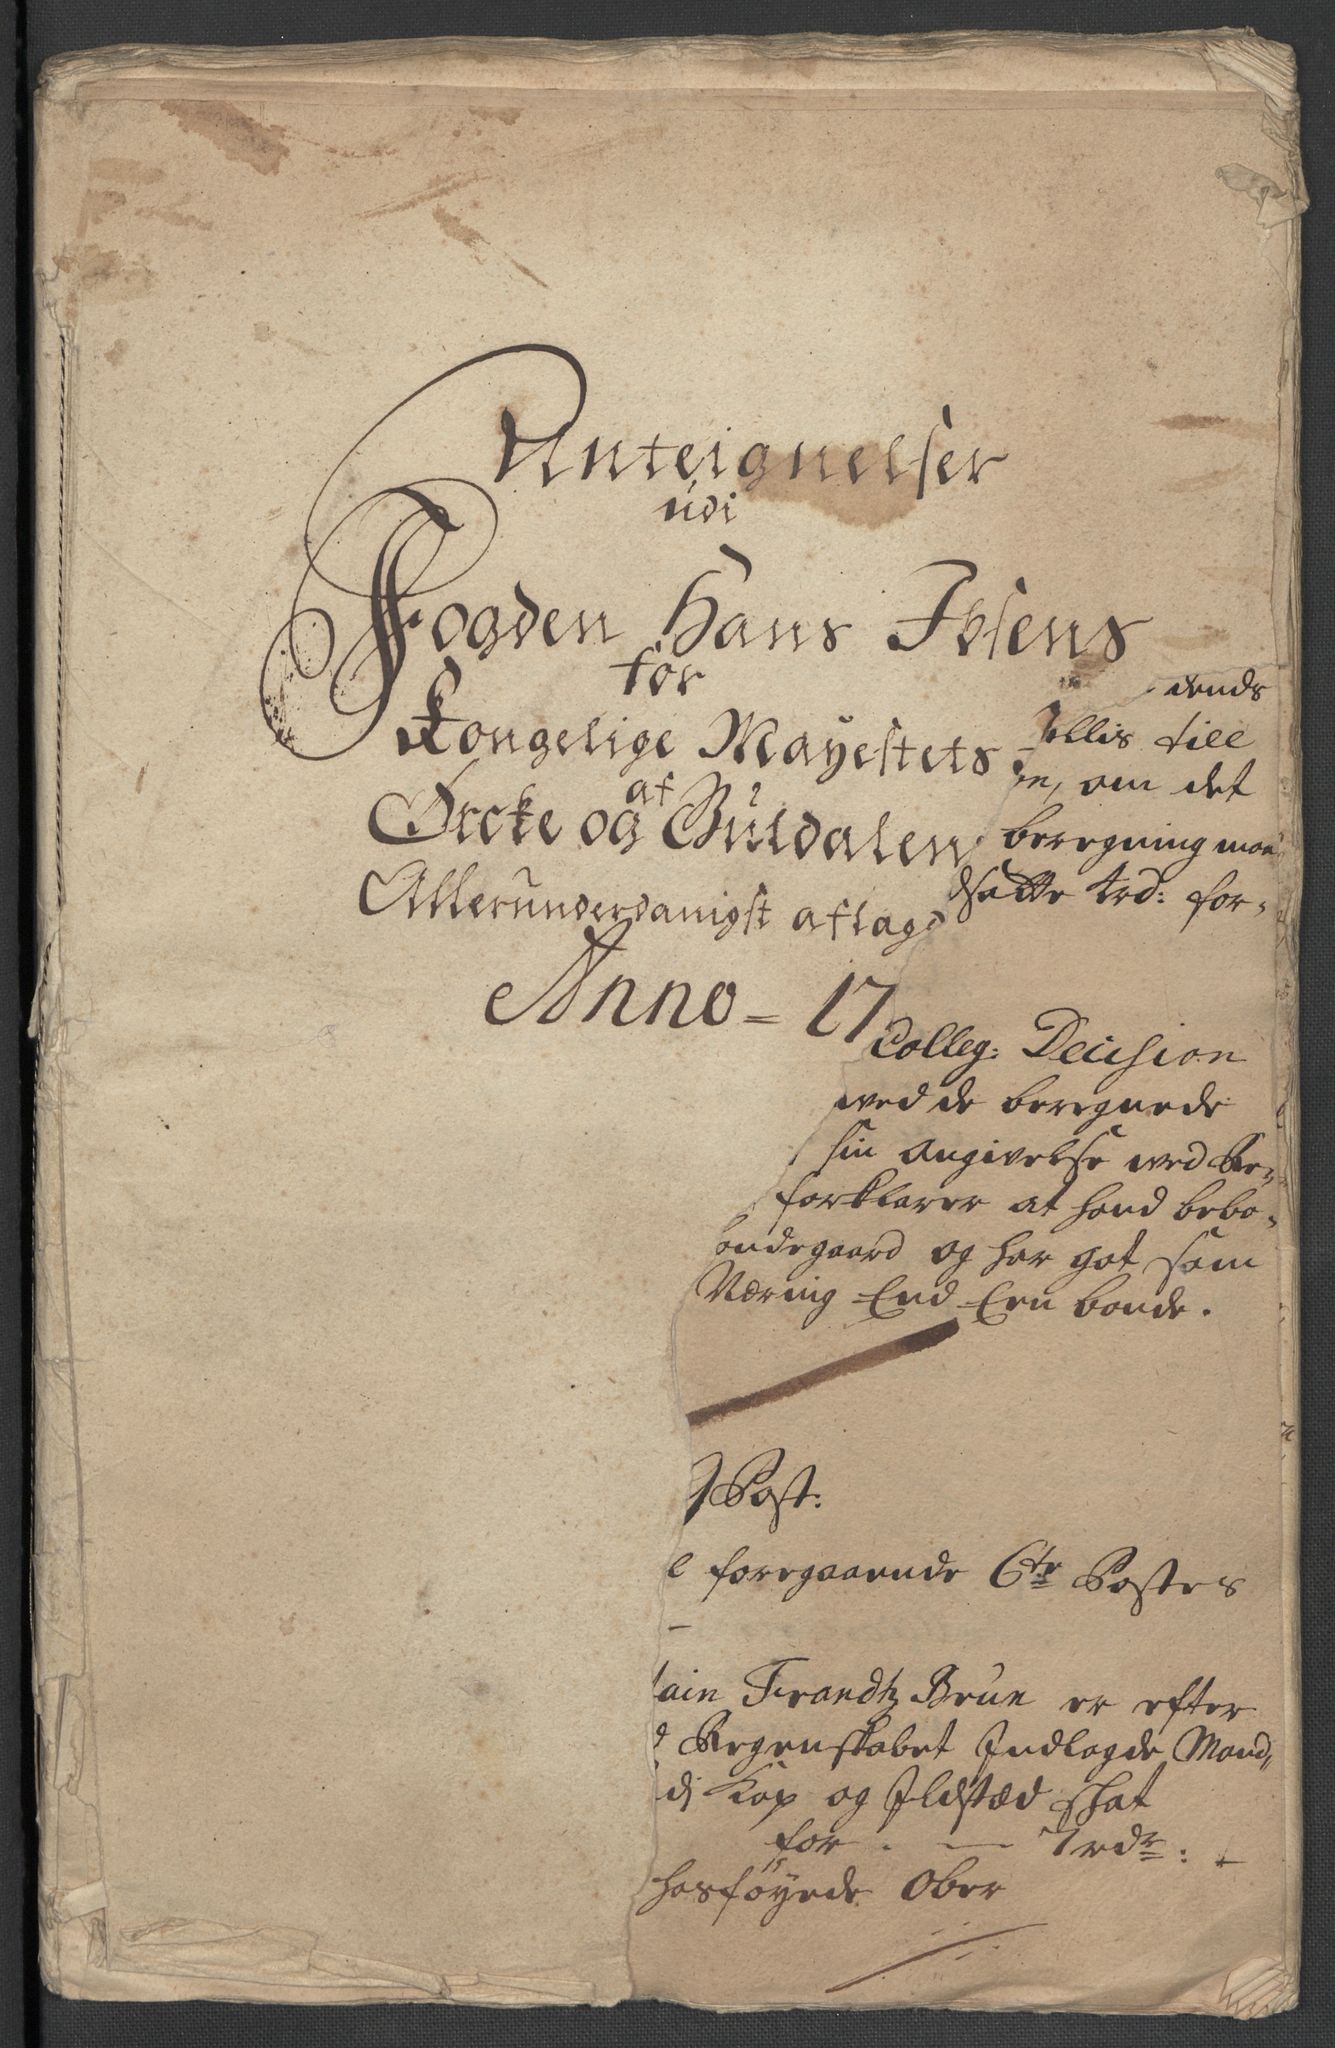 Anteignelser
udi
Fogden Hans Ibsens
for
Kongelige Mayestets
af
Orcke og Guldalen
Allerunderdanigst aflagd
Anno = 17
dends
till
om det
beregning
satte trd: for-
Colleg: Decision
wed de beregnede
sin angivelse wed Re-
forklarer at hand bebo-
ondegaard og har got som
Næring End Een bonde.
Post:
e foregaaende 6te Postes
tain Frandtz Brun er efter
Regenskabet Indlagde Mand-
di Kop og Ildstæd skat
for . — 7 rdr:
hosføyede Ober